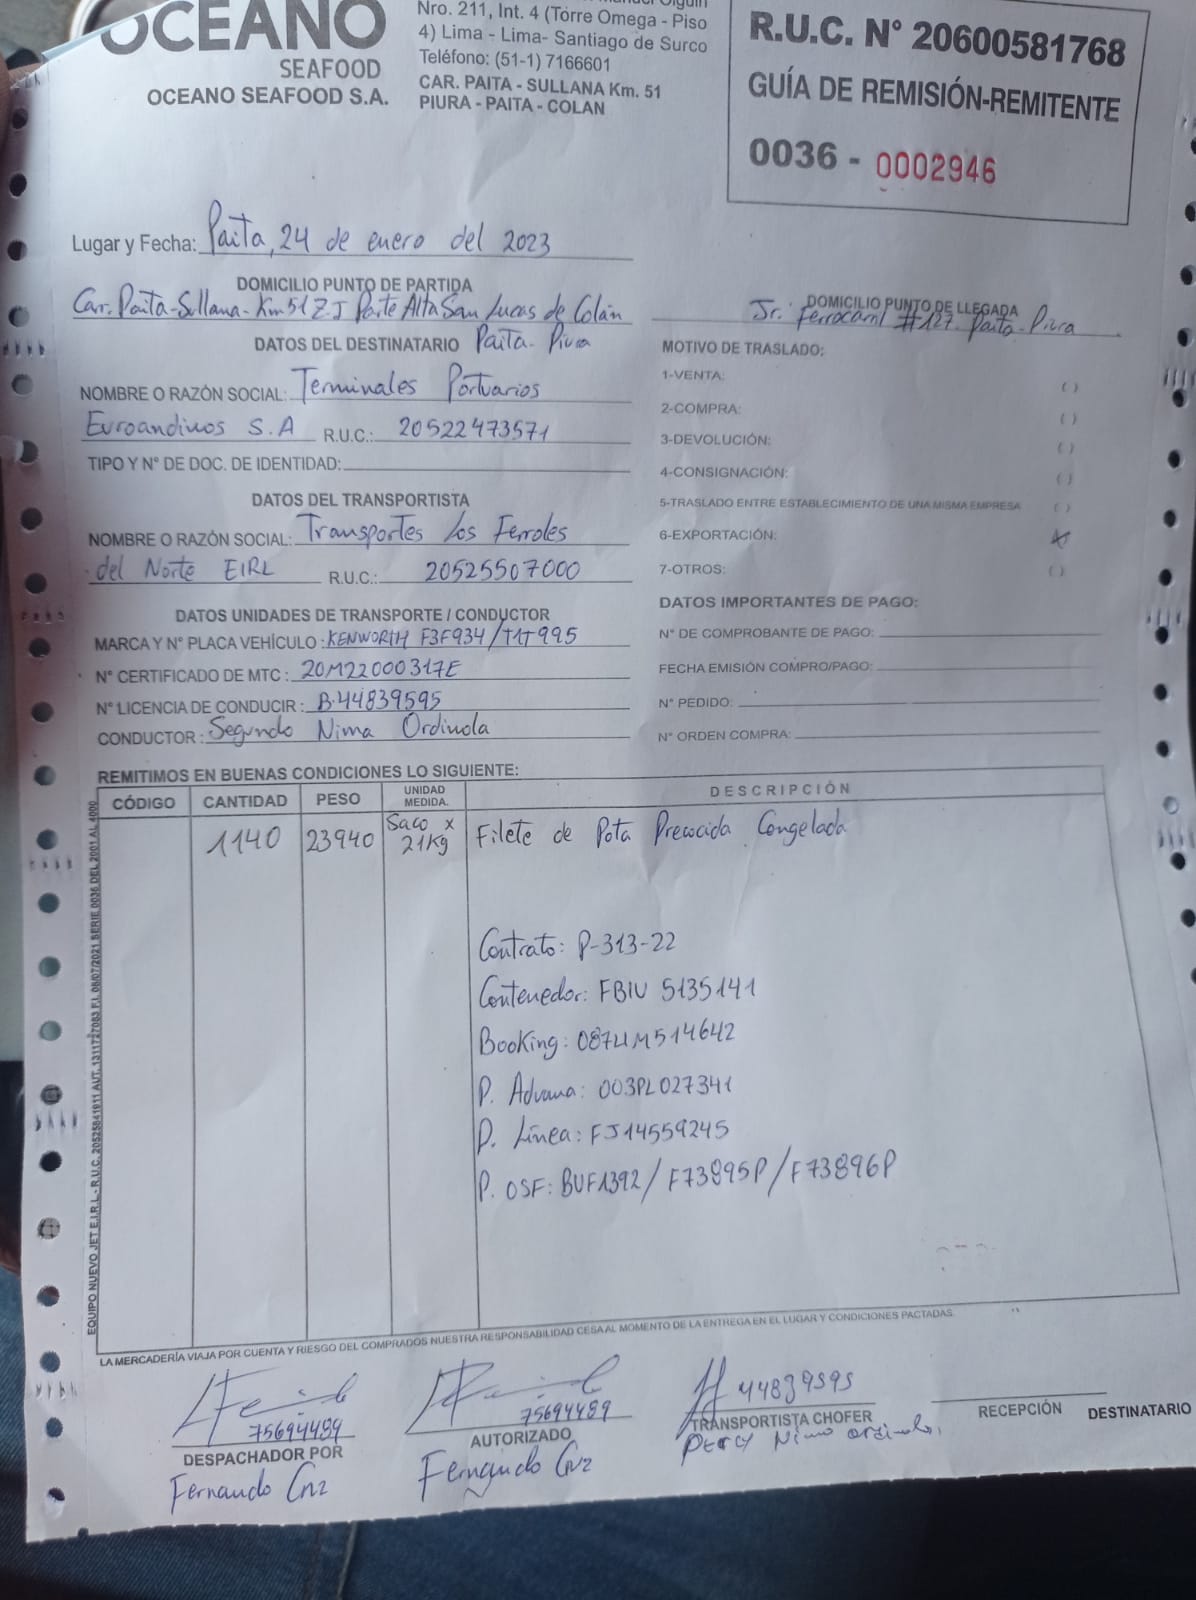 OCEANO
SEAFOOD
OCEANO SEAFOOD S.A.
Nro. 211, Int. 4 (Torre Omega - Piso
4) Lima - Lima- Santiago de Surco
Teléfono: (51-1) 7166601
CAR. PAITA - SULLANA Km. 51
PIURA - PAITA - COLAN
R.U.C. N° 20600581768
GUÍA DE REMISIÓN-REMITENTE
0036 - 0002946
Lugar y Fecha: Paita, 24 de enero del 2023
DOMICILIO PUNTO DE PARTIDA
Car. Paita-Sullana-Km 51 Z.I Parte Alta San Lucas de Colán
Paita-Piura
DOMICILIO PUNTO DE LLEGADA
Jr. Ferrocarril #127. Paita-Piura
DATOS DEL DESTINATARIO
NOMBRE O RAZÓN SOCIAL: Terminales Portuarios
Euroandinos S.A R.U.C.: 20522473571
TIPO Y N° DE DOC. DE IDENTIDAD:
DATOS DEL TRANSPORTISTA
NOMBRE O RAZÓN SOCIAL: Transportes los Ferroles
del Norte EIRL R.U.C.: 20525507000
DATOS UNIDADES DE TRANSPORTE / CONDUCTOR
MARCA Y N° PLACA VEHÍCULO: KENWORTH F3F934/T1T995
N° CERTIFICADO DE MTC: 20M22000317E
N° LICENCIA DE CONDUCIR: B-44839595
CONDUCTOR: Segundo Nima Ordinola
MOTIVO DE TRASLADO:
1-VENTA: ( )
2-COMPRA: ( )
3-DEVOLUCIÓN: ( )
4-CONSIGNACIÓN: ( )
5-TRASLADO ENTRE ESTABLECIMIENTO DE UNA MISMA EMPRESA ( )
6-EXPORTACIÓN: (X)
7-OTROS: ( )
DATOS IMPORTANTES DE PAGO:
N° DE COMPROBANTE DE PAGO:
FECHA EMISIÓN COMPRO/PAGO:
N° PEDIDO:
N° ORDEN COMPRA:
REMITIMOS EN BUENAS CONDICIONES LO SIGUIENTE:
CÓDIGO CANTIDAD PESO UNIDAD MEDIDA. DESCRIPCIÓN
1140 23940 Saco x 21Kg Filete de Pota Precocida Congelada
Contrato: P-313-22
Contenedor: FBIU 5135141
Booking: 087LIM514642
P. Aduana: 003PL027341
P. Línea: FJ14559245
P. OSF: BUF1392/F73895P/F73896P
EQUIPO NUEVO JET E.I.R.L - R.U.C. 20525841911 AUT. 1311727083 F.I. 08/07/2021 SERIE 0036 DEL 2001 AL 4000
LA MERCADERÍA VIAJA POR CUENTA Y RIESGO DEL COMPRADOS NUESTRA RESPONSABILIDAD CESA AL MOMENTO DE LA ENTREGA EN EL LUGAR Y CONDICIONES PACTADAS.
75694489
DESPACHADOR POR
Fernando Cruz
75694489
AUTORIZADO
Fernando Cruz
44839595
TRANSPORTISTA CHOFER
Percy Nima Ordinola
RECEPCIÓN DESTINATARIO